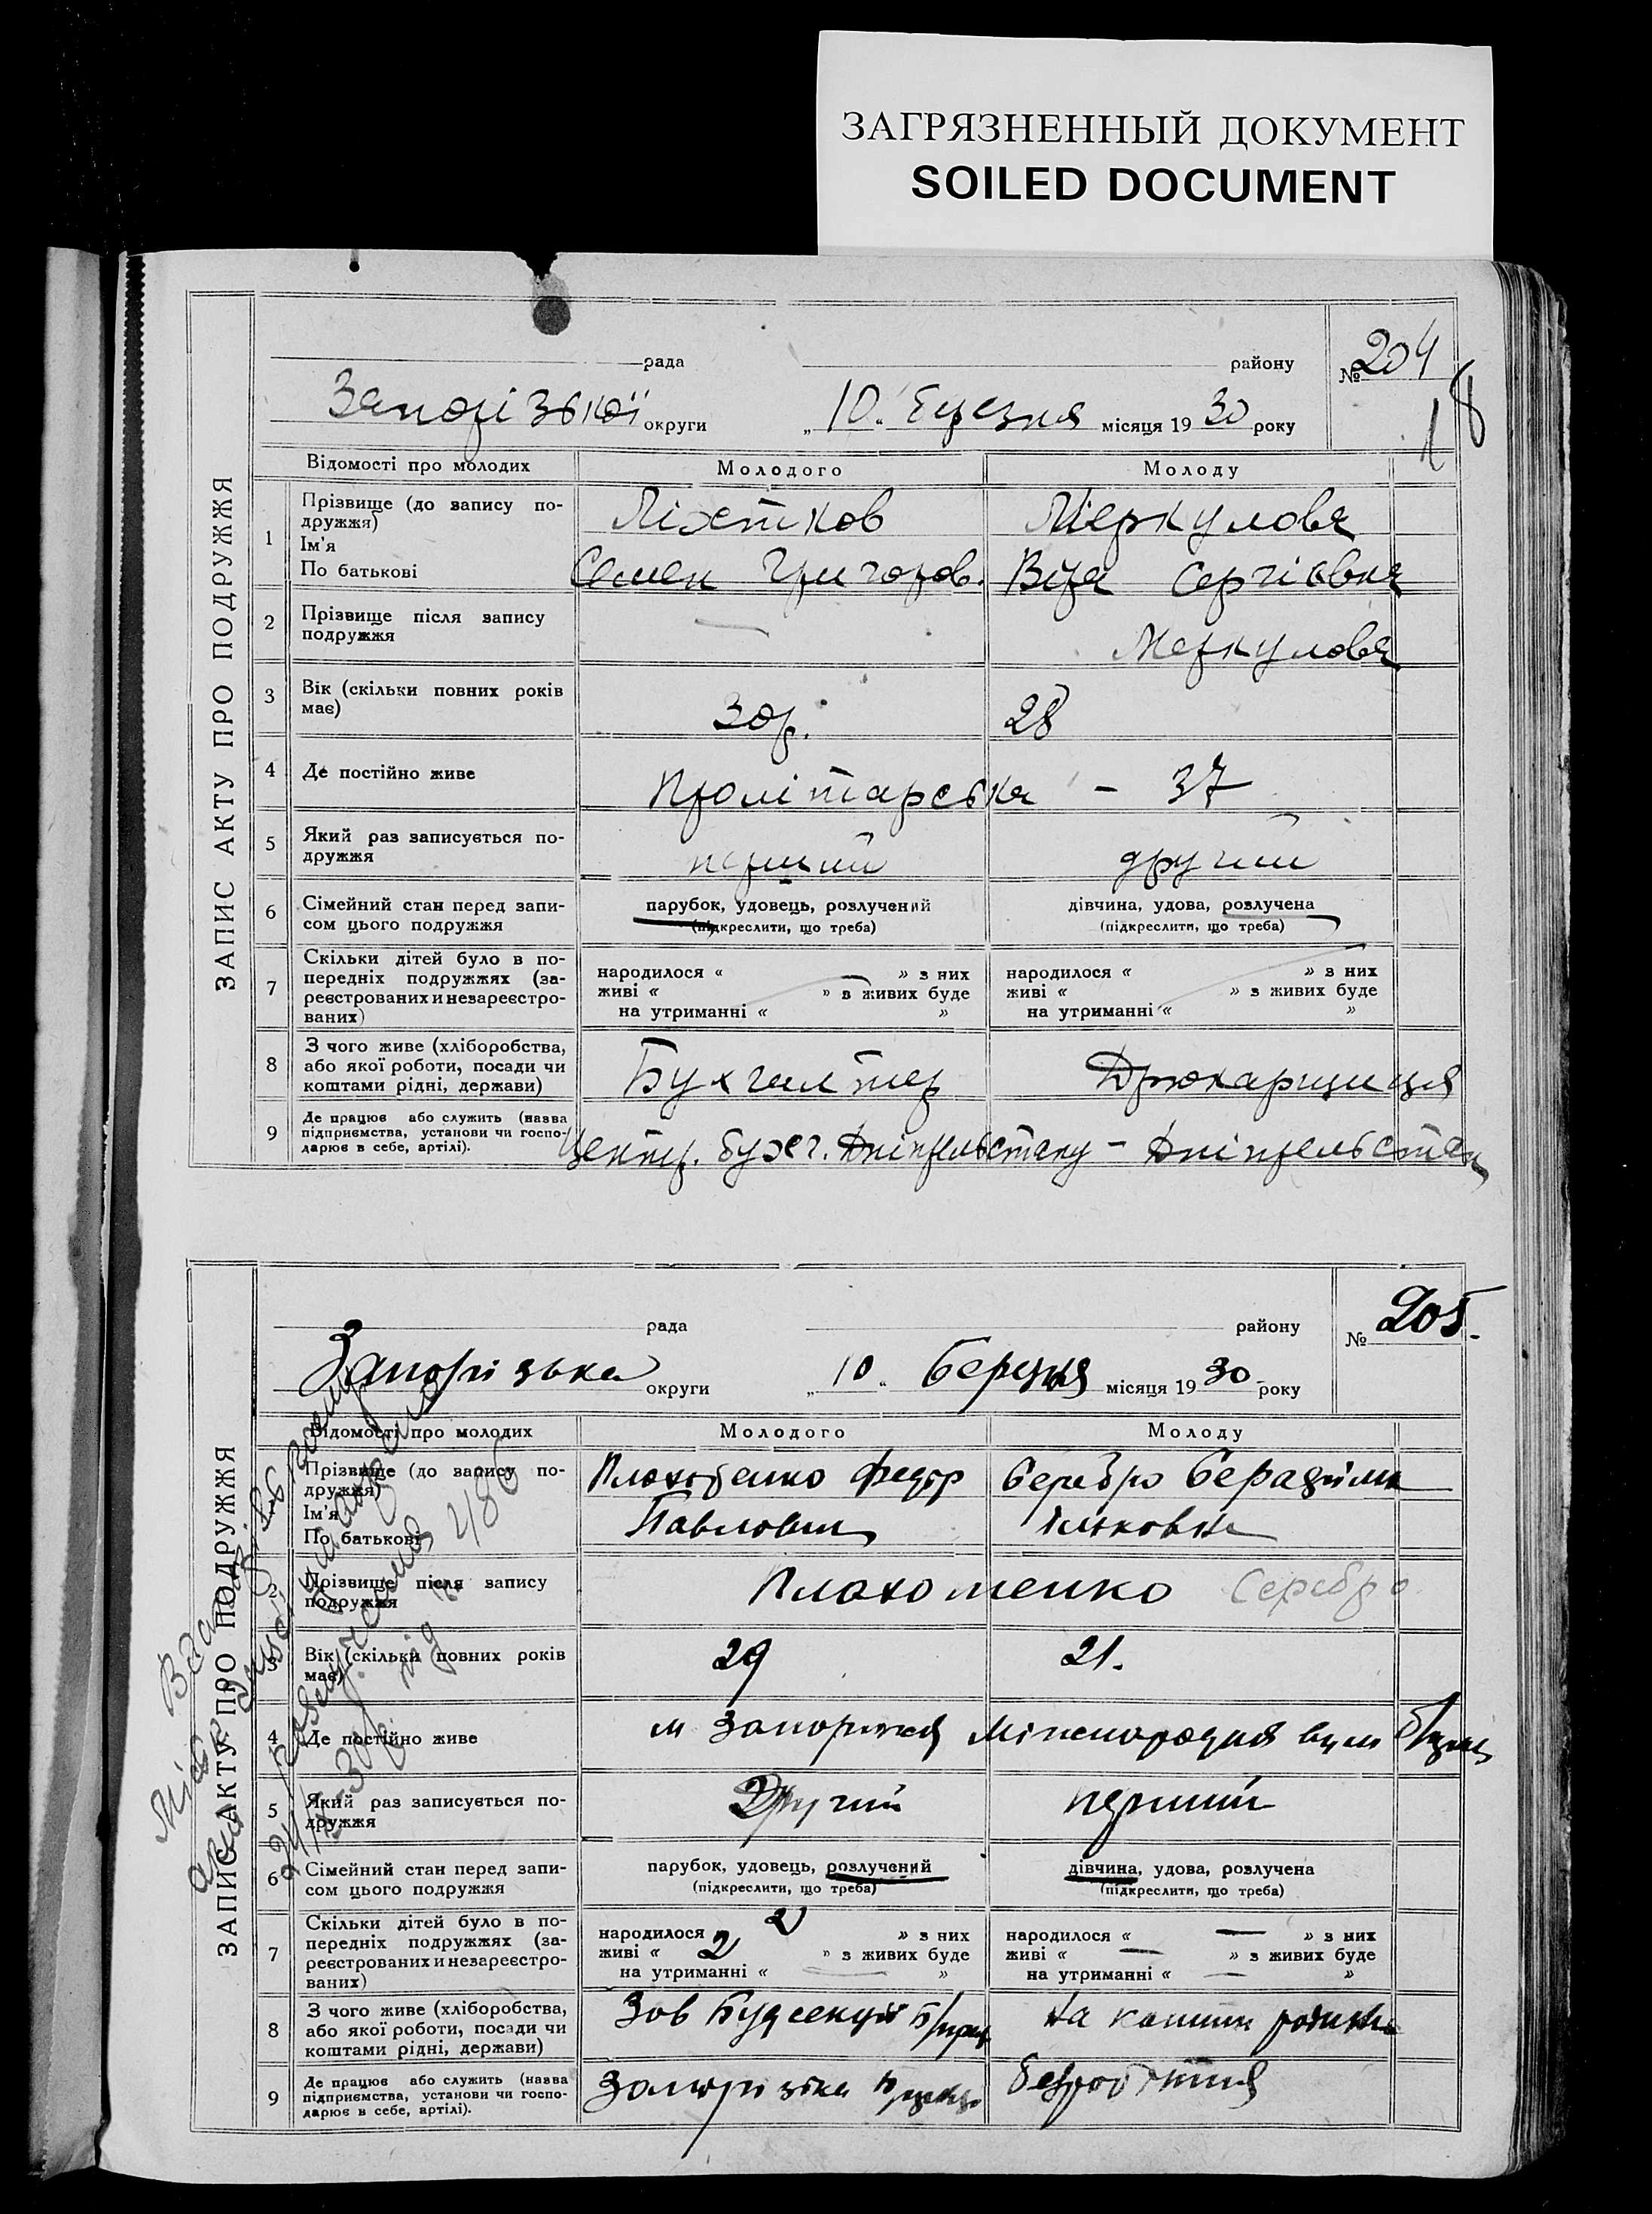 ЗАГРЯЗНЕННЫЙ ДОКУМЕНТ
SOILED DOCUMENT
ЗАПИС АКТУ ПРО ПОДРУЖЖЯ
рада району № 204
18
Запорізької округи „10" березня місяця 1930 року
Відомості про молодих Молодого Молоду
1 Прізвище (до запису подружжя) Ліхтков Меркулова
Ім'я
По батькові Семен Григоров. Віра Сергіївна
2 Прізвище після запису подружжя — Меркулова
3 Вік (скільки повних років має) 30р. 28
4 Де постійно живе Пролітарська - 37
5 Який раз записується подружжя перший другий
6 Сімейний стан перед записом цього подружжя парубок, удовець, розлучений дівчина, удова, розлучена
(підкреслити, що треба) (підкреслити, що треба)
7 Скільки дітей було в попередніх подружжях (зареєстрованих и незареєстрованих)
народилося « — » з них народилося « » з них
живі « » в живих буде живі « » з живих буде
на утриманні « » на утриманні « »
8 З чого живе (хліборобства, або якої роботи, посади чи коштами рідні, держави) Бухгалтер Друкарщиця
9 Де працює або служить (назва підприємства, установи чи господарює в себе, артілі). Центр. бухг. Дніпрельстану - Дніпрельстан
ЗАПИС АКТУ ПРО ПОДРУЖЖЯ
рада району № 205.
Запорізька округи „10" березня місяця 1930 року
Відомості про молодих Молодого Молоду
Прізвище (до запису подружжя) Федор Серебро Серафима
Ім'я
По батькові Павлович
2 Прізвище після запису подружжя Плахотенко Серебро
3 Вік (скільки повних років має) 29 21.
4 Де постійно живе м Запоріжжя Міжнародня вул
5 Який раз записується подружжя Другий перший
6 Сімейний стан перед записом цього подружжя парубок, удовець, розлучений дівчина, удова, розлучена
(підкреслити, що треба) (підкреслити, що треба)
7 Скільки дітей було в попередніх подружжях (зареєстрованих и незареєстрованих)
народилося 2 » з них народилося « — » з них
живі « 2 » з живих буде живі « — » з живих буде
на утриманні « — » на утриманні « — »
8 З чого живе (хліборобства, або якої роботи, посади чи коштами рідні, держави) Зав Будсекції На кошти родини
9 Де працює або служить (назва підприємства, установи чи господарює в себе, артілі). Запорізька безробітня
486